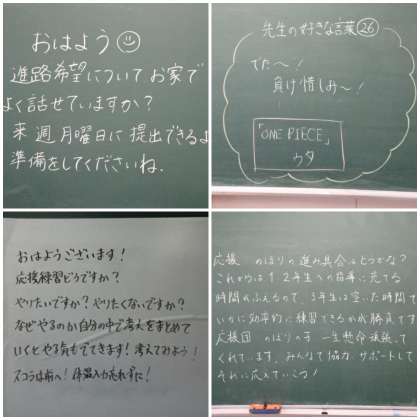 おはよう☺
進路希望について お家で
よく話せていますか?
来週月曜日に提出できるよ
準備をしてくださいね.
先生の好きな言葉㉖
でた〜!
負け惜しみ〜!
「ONE PIECE」
ウタ
おはようございます!
応援練習どうですか?
やりたいですか?やりたくないですか?
なぜやるのか自分の中で考えをまとめて
いくとやる気もでてきます!考えてみよう!
スコラは前へ!体温入力忘れずに!
応援 のぼりの進み具合はどうかな?
これからは1,2年生への指導に充てる
時間がふえるので、3年生は空いた時間で
いかに効率的に練習できるかが勝負です
応援団 のぼりの 一生懸命頑張って
くれています。みんなで協力、サポートして
それに応えていこう!